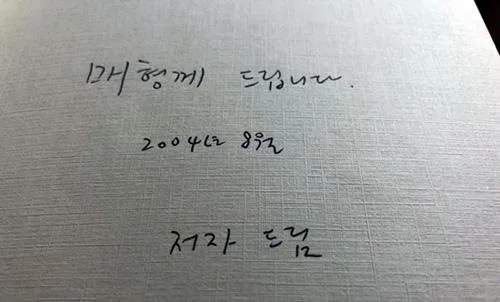 매형께 드립니다.
2004년 8월
저자 드림